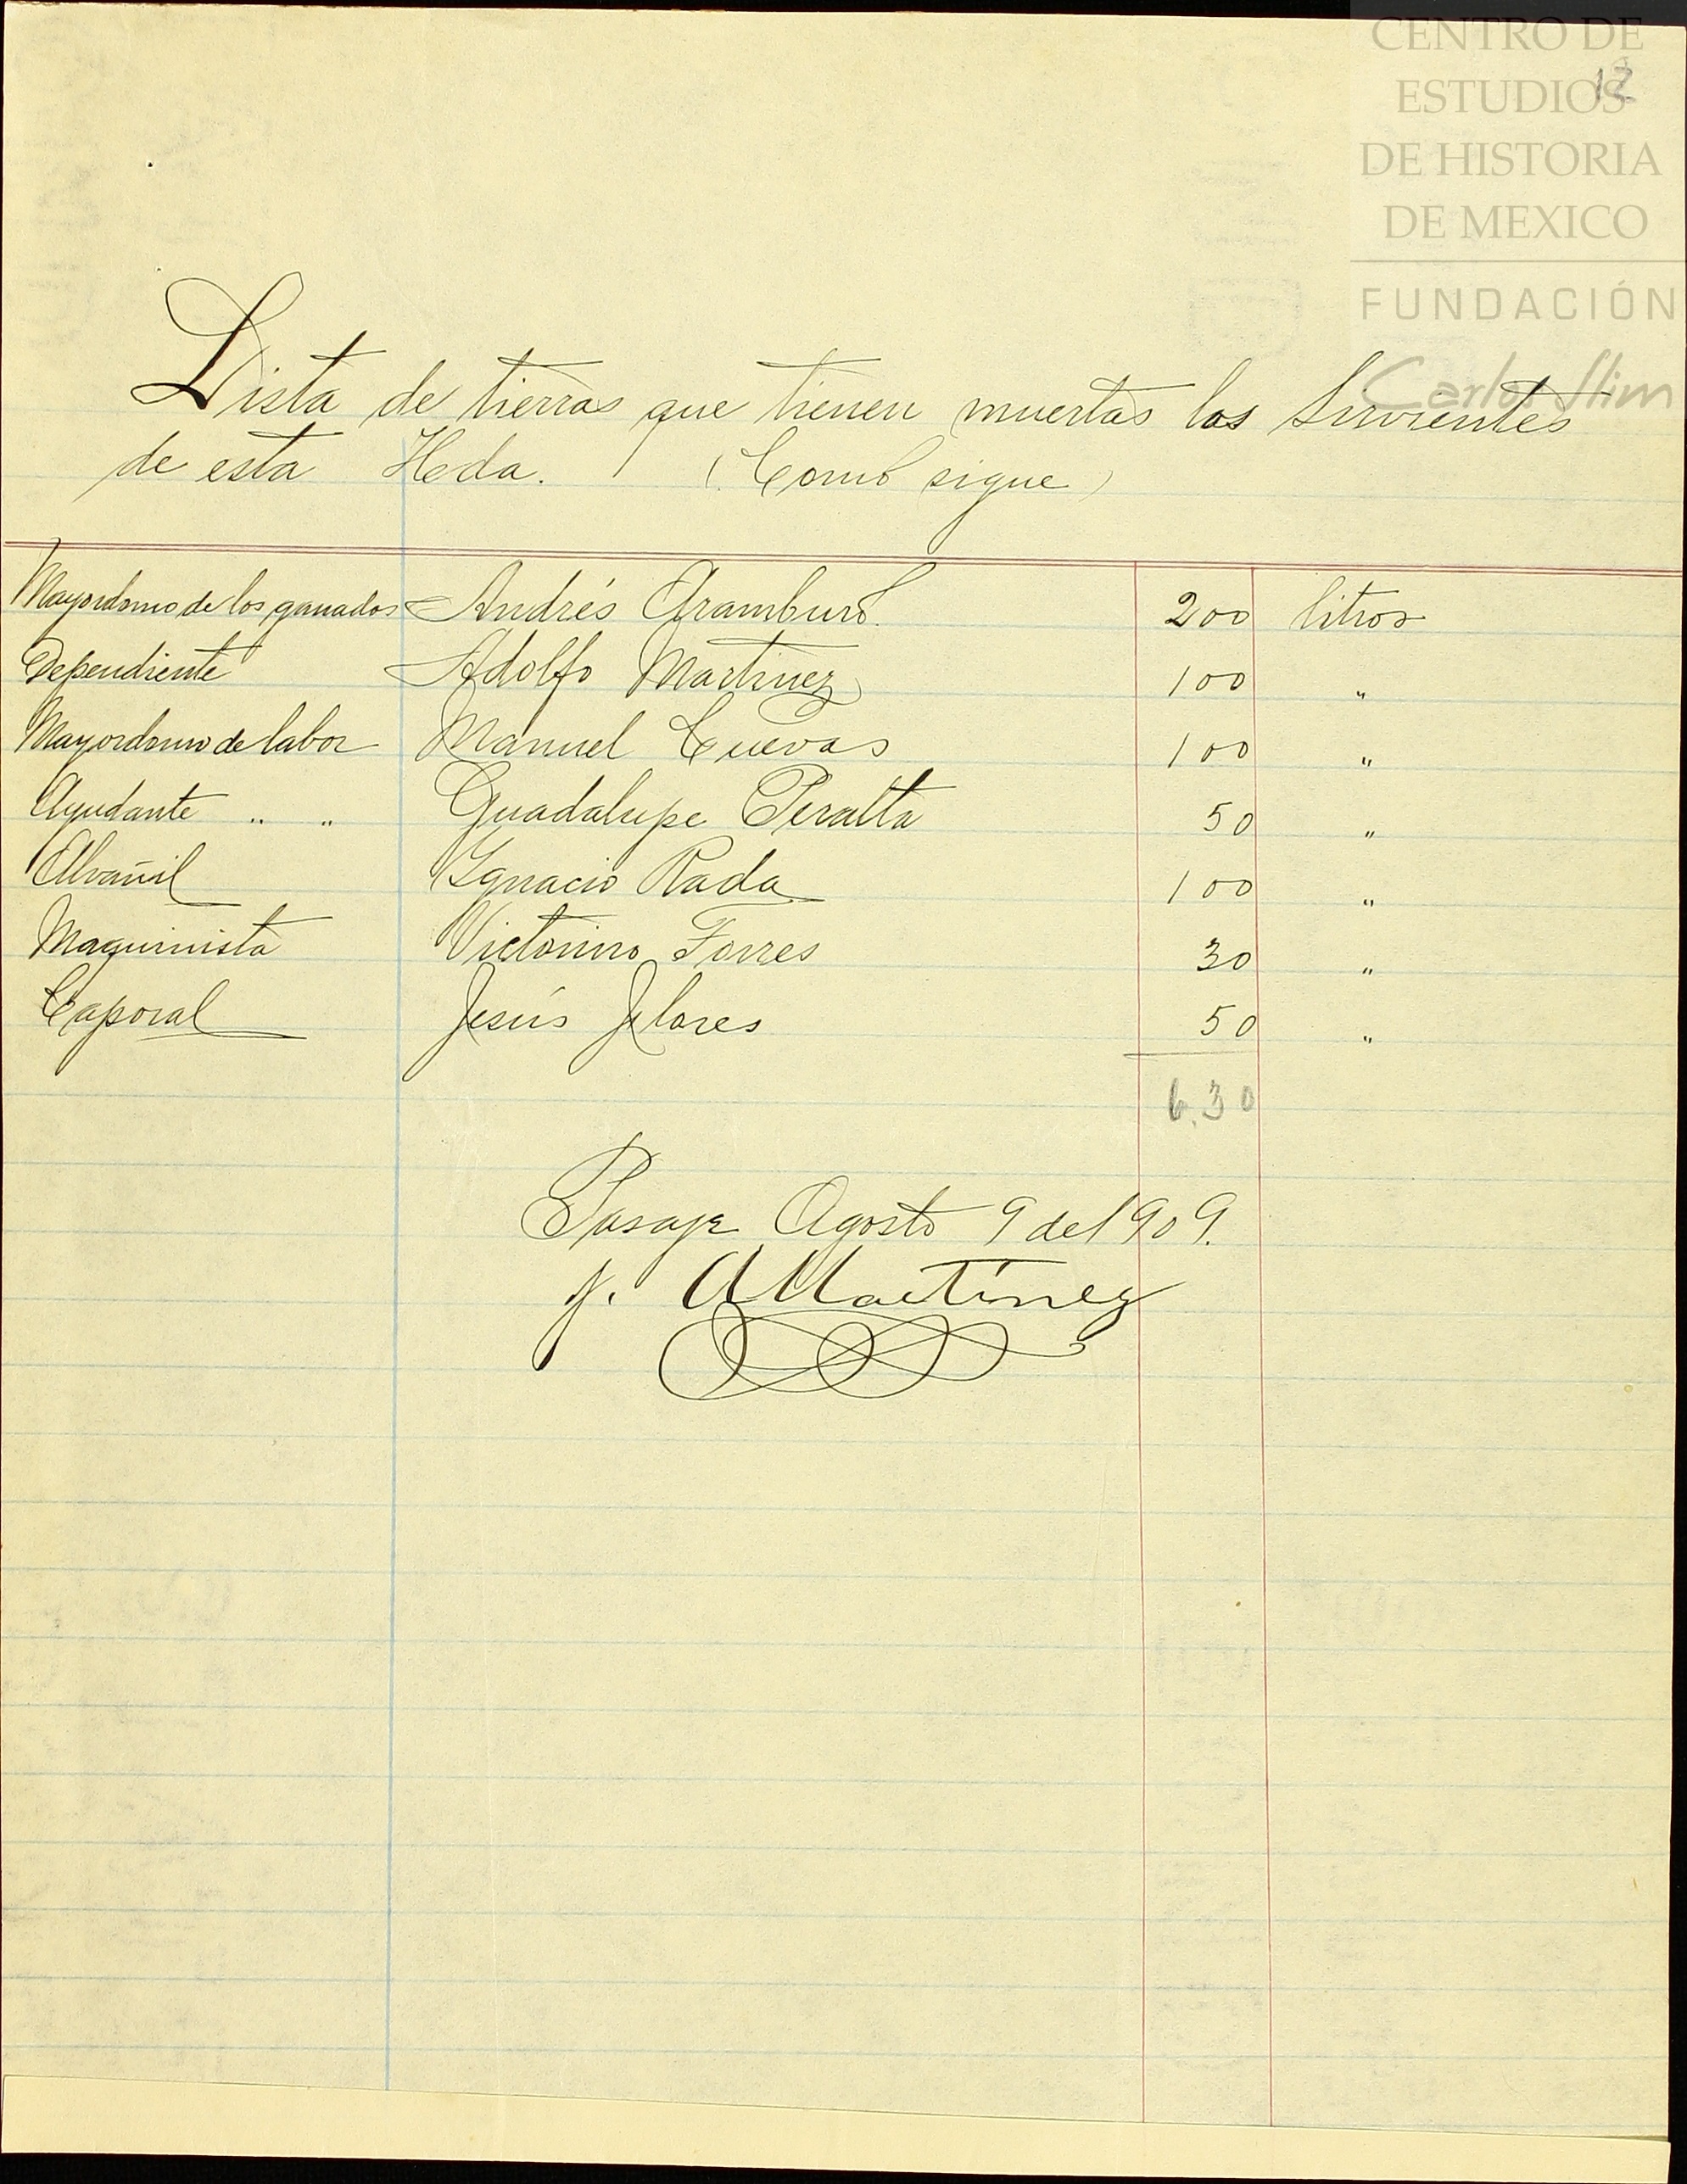 CENTRO DE
ESTUDIOS
DE HISTORIA
DE MEXICO
FUNDACIÓN
Carlos Slim
12
Lista de tierras que tienen muertas los Sirvientes
de esta Hcda. (Como sigue)
Mayordomo de los ganados Andrés Aramburó. 200 litros
Dependiente Adolfo Martinez 100 "
Mayordomo de labor Manuel Cuevas 100 "
Ayudante " " Guadalupe Peralta 50 "
Alvañil Ygnacio Rada 100 "
Maquinista Victorino Torres 30 "
Caporal Jesús Flores 50 "
6.30
Pasaje Agosto 9 de 1909.
f. AMartínez